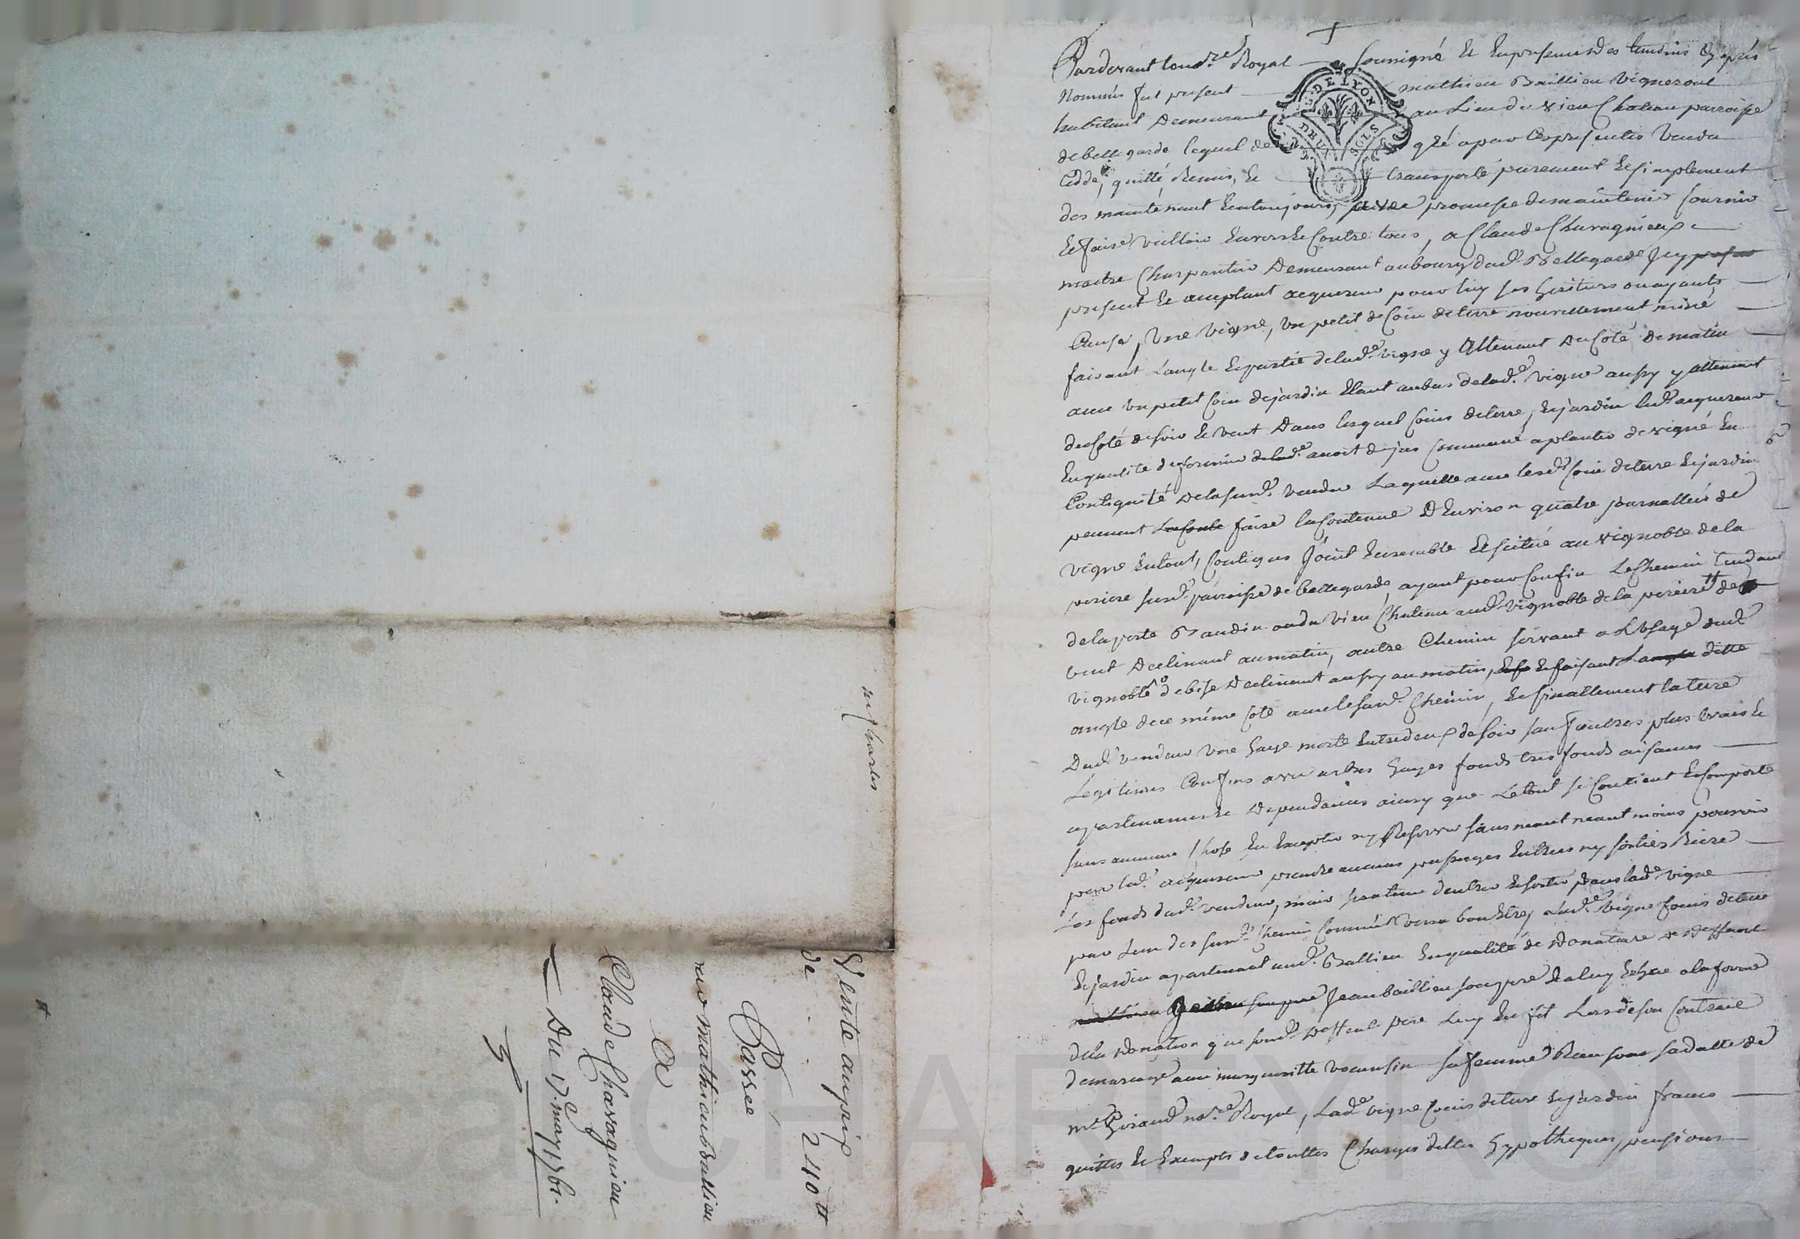 Pardevant le no.re Royal soussigné Et En presence des temoins cy apres
Nommés fut present mathieu Baillieu vigneront
habitant Demeurant au Lieu du vieu Chateau parroisse
de bellegarde lequel de gré a par Ces presentes vendu
Cedde, quitté Remis, Et transporté purement Et simplement
des maintenant Et a toujours, promesse de maintenir fournir
Et faire valloir Envers Et Contre tous, a Claude Charagnieux
maitre Charpentier Demeurant au bourg dud. Bellegarde Icy
present Et aceptant acquereur pour luy ses heritiers ou ayants
Cause, Une vigne, un petit de Coin de terre nouvellement miné
faisant L'angle Et partie de lad.e vigne y Attenant Du Coté De matin
avec un petit Coin de jardin Etant au bas de lad.e vigne aussy y attenant
du Coté de soir Et vent Dans lesquel Coins de terre, Et jardin led. acquereur
En qualité de fermier de lad.e avoit deja Commencé a planter de vigne En
Contiguité De la sus d.e vendue Laquelle avec lesd. Coin de terre Et jardin
peuvent faire la Contenue D'Environ quatre journallées de
vigne En tout, Contigus Joint Ensemble Et scitué au vignoble de la
periere sus d. parroisse de bellegarde ayant pour Confin Le Chemin Tendant
de la porte Baudin ou du vieu Chateau aud. vignoble de la periere de
vent Declinant au matin, autre Chemin servant a L'Usage dud.
vignoble de bise Declinant aussy au matin, Et faisant L'angle
angle de ce même Coté avec le sus d. Chemin, Et finallement la terre
Dud. vendeur Une haye morte Entredeux de soir sauf autres plus vrais Et
Legitimes Confins avec arbres hayes fonds tresfonds aisances
apartenances Et Dependances ainsy que Le tout se Contient Et Comporte
sans aucune Chose En Excepter ny Reserver sans neant moins pouvoir
par led. acquereur prendre aucuns passages Entrées ny sorties Riere
Les fonds dud. vendeur, mais seulement d'entrer Et sortir Dans lad.e vigne
par L'un des sus d. Chemin Comme Verra bon Etre, Lad.e vigne Coins de terre
Et jardin apartenant aud. Baillieu En qualité de Donataire
Jean baillieu son pere a la forme
de la Donation que sond. Deffunt pere Luy En fit Lors de son Contract
de mariage avec margueritte sa femme Reçu sous sa datte de
m.e Giraud no.re Royal, Lad.e vigne Coins de terre Et jardin francs
quittes Et Exempts de touttes Charges dettes hypotheques, pensions
Vente au prix
de 240 tt
Passée
par mathieu Baillieu
A
Claude Charagnieu
Du 17.e may 1761.